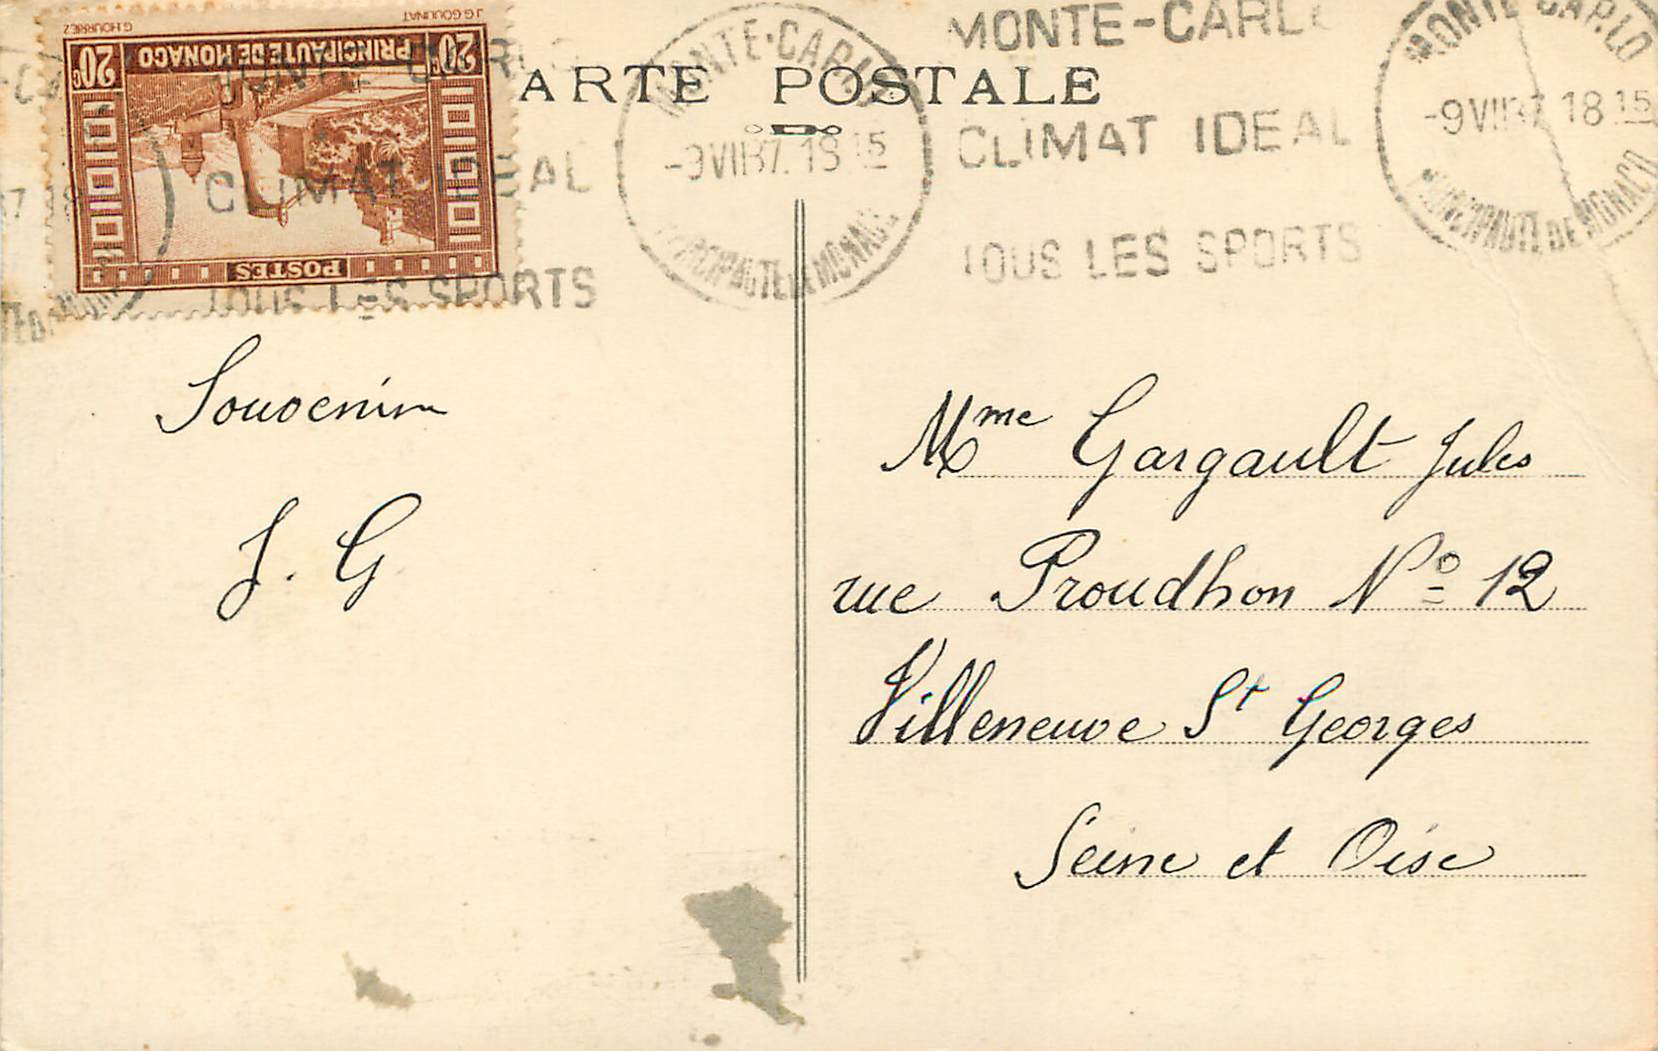 J.G GOUINAT
G.HOURRIEZ
20c PRINCIPAUTÉ DE MONACO 20c
POSTES
ARTE POSTALE
MONTE-CARLO
-9 VII 37. 18 15
PRINCIPAUTE DE MONACO
MONTE-CARLO
CLIMAT IDEAL
TOUS LES SPORTS
MONTE-CARLO
-9 VII 37 18 15
PRINCIPAUTE DE MONACO
CLIMAT IDEAL
TOUS LES SPORTS
Souvenir
J. G
Mme Gargault Jules
rue Proudhon No 12
Villeneuve St Georges
Seine et Oise